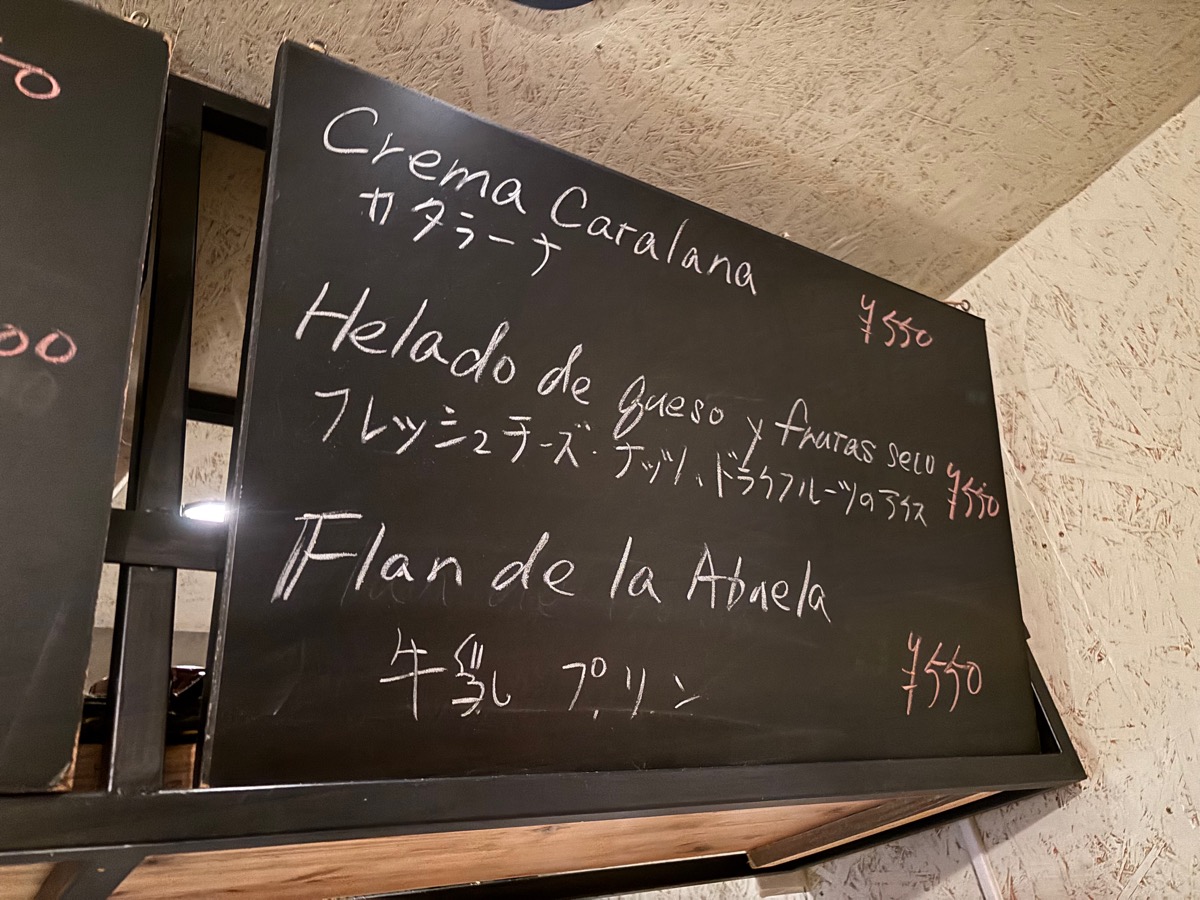 Crema Catalana
カタラーナ
¥550
Helado de queso y frutas seco
フレッシュチーズ・ナッツ、ドライフルーツのアイス ¥550
Flan de la Abuela
牛乳 プリン
¥550
00